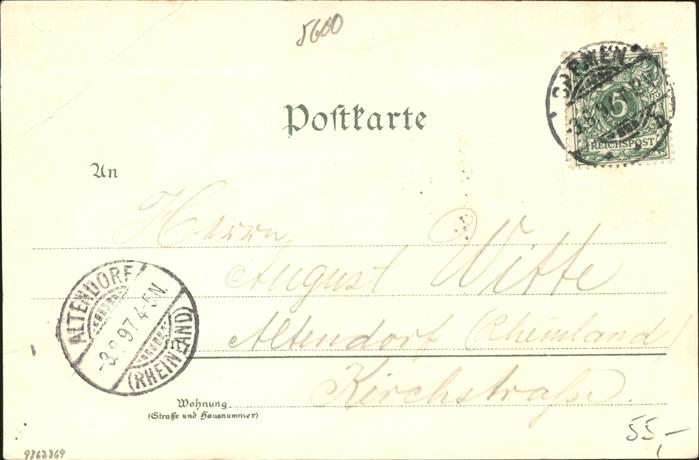 5600
BARMEN
5
REICHSPOST
Postkarte
An
Herrn
August Witte
Altendorf (Rheinland)
in
Kirchstraße.
ALTENDORF
-3.8.97.4-5N.
(RHEINLAND)
Wohnung
(Straße und Hausnummer)
55,-
9868869